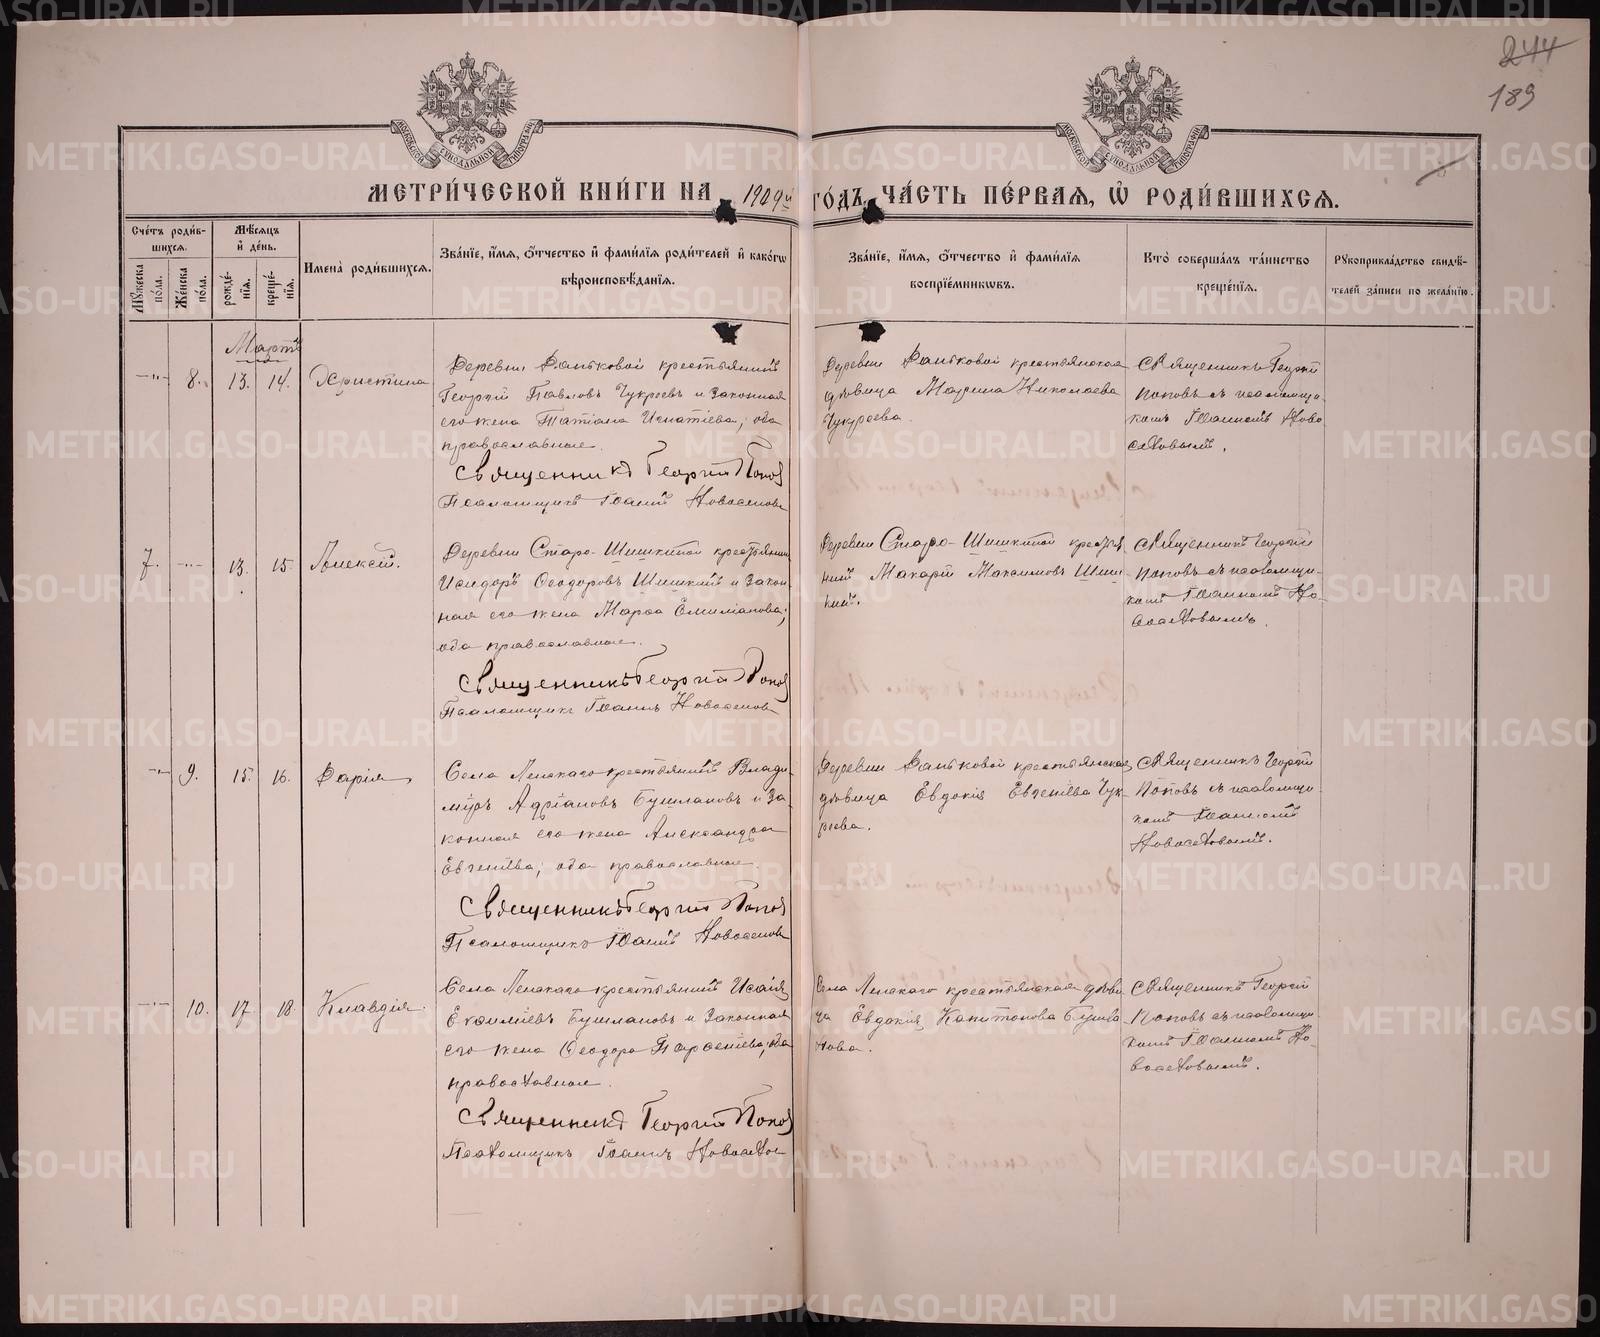 244
189
МЕТРИ́ЧЕСКОЙ КНИ́ГИ НА 1909й ГО́ДЪ, ЧА́СТЬ ПЕ́РВАЯ, Ѽ РОДИ́ВШИХСѦ.
МОСКОВСКОЙ СѴНОДАЛЬНОЙ ТИПОГРАФІИ
МОСКОВСКОЙ СѴНОДАЛЬНОЙ ТИПОГРАФІИ
Сче́тъ роди́в-
шихся.
Мѣ́сяцъ
и҆ де́нь.
Мꙋ́жеска
по́ла.
Же́нска
по́ла.
рожде́-
нїѧ.
креще́-
нїѧ.
Имена̀ роди́вшихся.
Зва́нїе, и҆́мѧ, ѻ҆́тчество и҆ фами́лїѧ роди́телей и҆ како́гѡ
вѣроисповѣ́данїѧ.
Зва́нїе, и҆́мѧ, ѻ҆́тчество и҆ фами́лїѧ
воспрїе́мникѡвъ.
Кто̀ соверша́лъ та́инство
креще́нїѧ.
Рꙋкоприкла́дство свидѣ́-
телей за́писи по жела́нїю.
Мартъ
—"— 8. 13. 14. Христина
Деревни Даньковой крестьянинъ
Георгій Павловъ Чукреевъ и законная
его жена Татіана Игнатіева; оба
православные.
Священникъ Георгій Попов
Псаломщикъ Іоаннъ Новоселовъ
Деревни Даньковой крестьянская
дѣвица Марина Николаева
Чукреева.
Священникъ Георгій
Поповъ съ псаломщи-
комъ Іоанномъ Ново-
селовымъ.
7. —"— 13. 15. Алексій.
Деревни Старо-Шишкиной крестьянин
Исидоръ Ѳеодоровъ Шишкинъ и закон-
ная его жена Марѳа Емиліанова;
оба православные.
Священникъ Георгій Попов
Псаломщикъ Іоаннъ Новоселов
Деревни Старо-Шишкиной крестья-
нинъ Макарій Максимовъ Шиш-
кинъ.
Священникъ Георгій
Поповъ съ псаломщи-
комъ Іоанномъ Но-
воселовымъ.
—"— 9. 15. 16. Дарія
Села Ленскаго крестьянинъ Влади-
міръ Адріановъ Бушлановъ и за-
конная его жена Александра
Евгеніева; оба православные.
Священникъ Георгій Попов
Псаломщикъ Іоаннъ Новоселовъ
Деревни Даньковой крестьянская
дѣвица Евдокія Евгеніева Чук-
реева.
Священникъ Георгій
Поповъ съ псаломщи-
комъ Іоанномъ
Новоселовымъ.
—"— 10. 17. 18. Клавдія.
Села Ленскаго крестьянинъ Исаія
Евѳиміевъ Бушлановъ и законная
его жена Ѳеодора Парѳеніева; оба
православные.
Священникъ Георгій Попов
Псаломщикъ Іоаннъ Новоселов
Села Ленскаго крестьянская дѣви-
ца Евдокія Капитонова Бушла-
нова.
Священникъ Георгій
Поповъ съ псаломщи-
комъ Іоанномъ Но-
воселовымъ.
METRIKI.GASO-URAL.RU